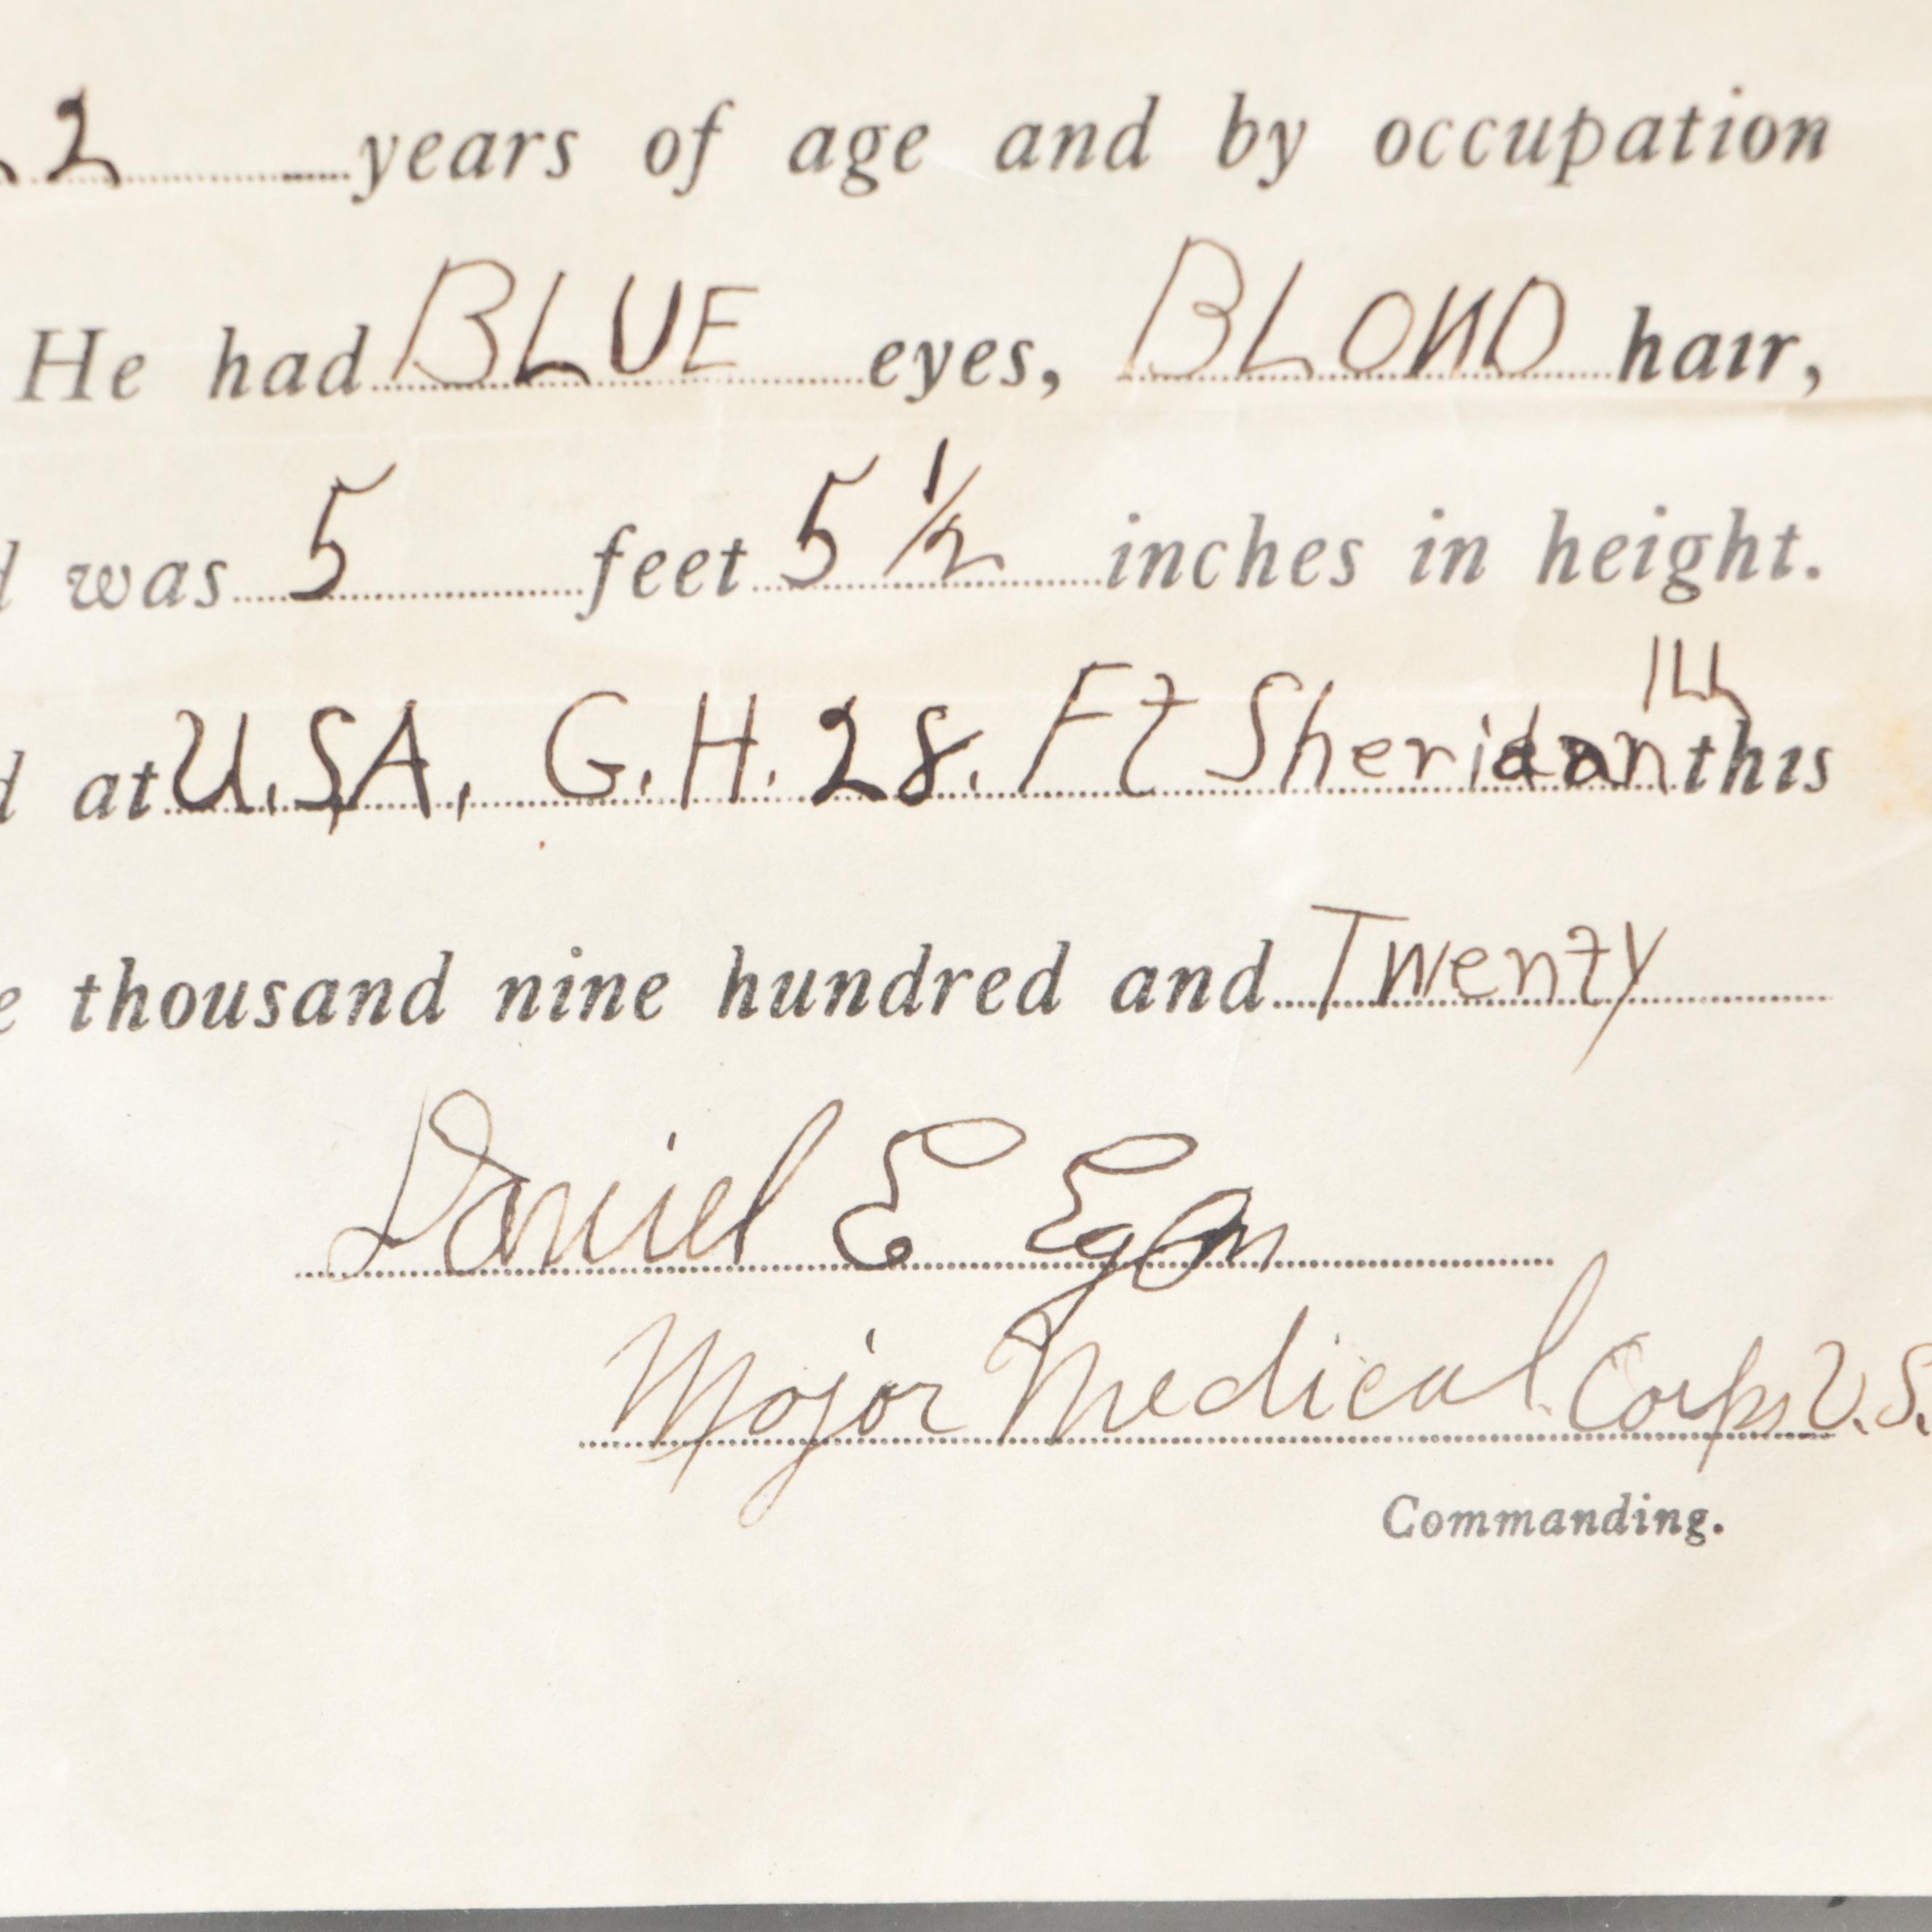 2 years of age and by occupation
He had BLUE eyes, BLOND hair,
d was 5 feet 5 1/2 inches in height.
d at U.S.A. G.H. 28. Ft Sheridan ILL this
e thousand nine hundred and Twenty
Daniel E Egan
Major Medical Corps U.S.
Commanding.